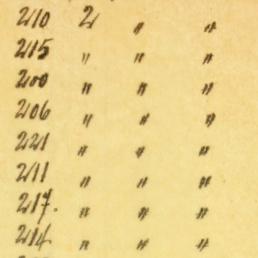 210 2 " "
215 " " "
200 " " "
206 " " "
221 " " "
211 " " "
217. " " "
214 " " "